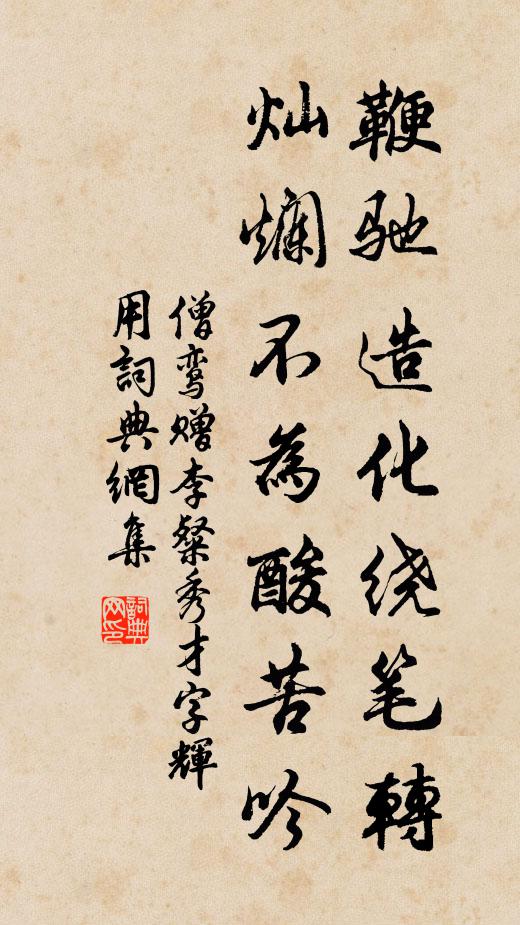 鞭驰造化绕笔轉
灿爛不為酸苦吟
僧鸾赠李粲秀才字輝
用詞典網集
詞典网印